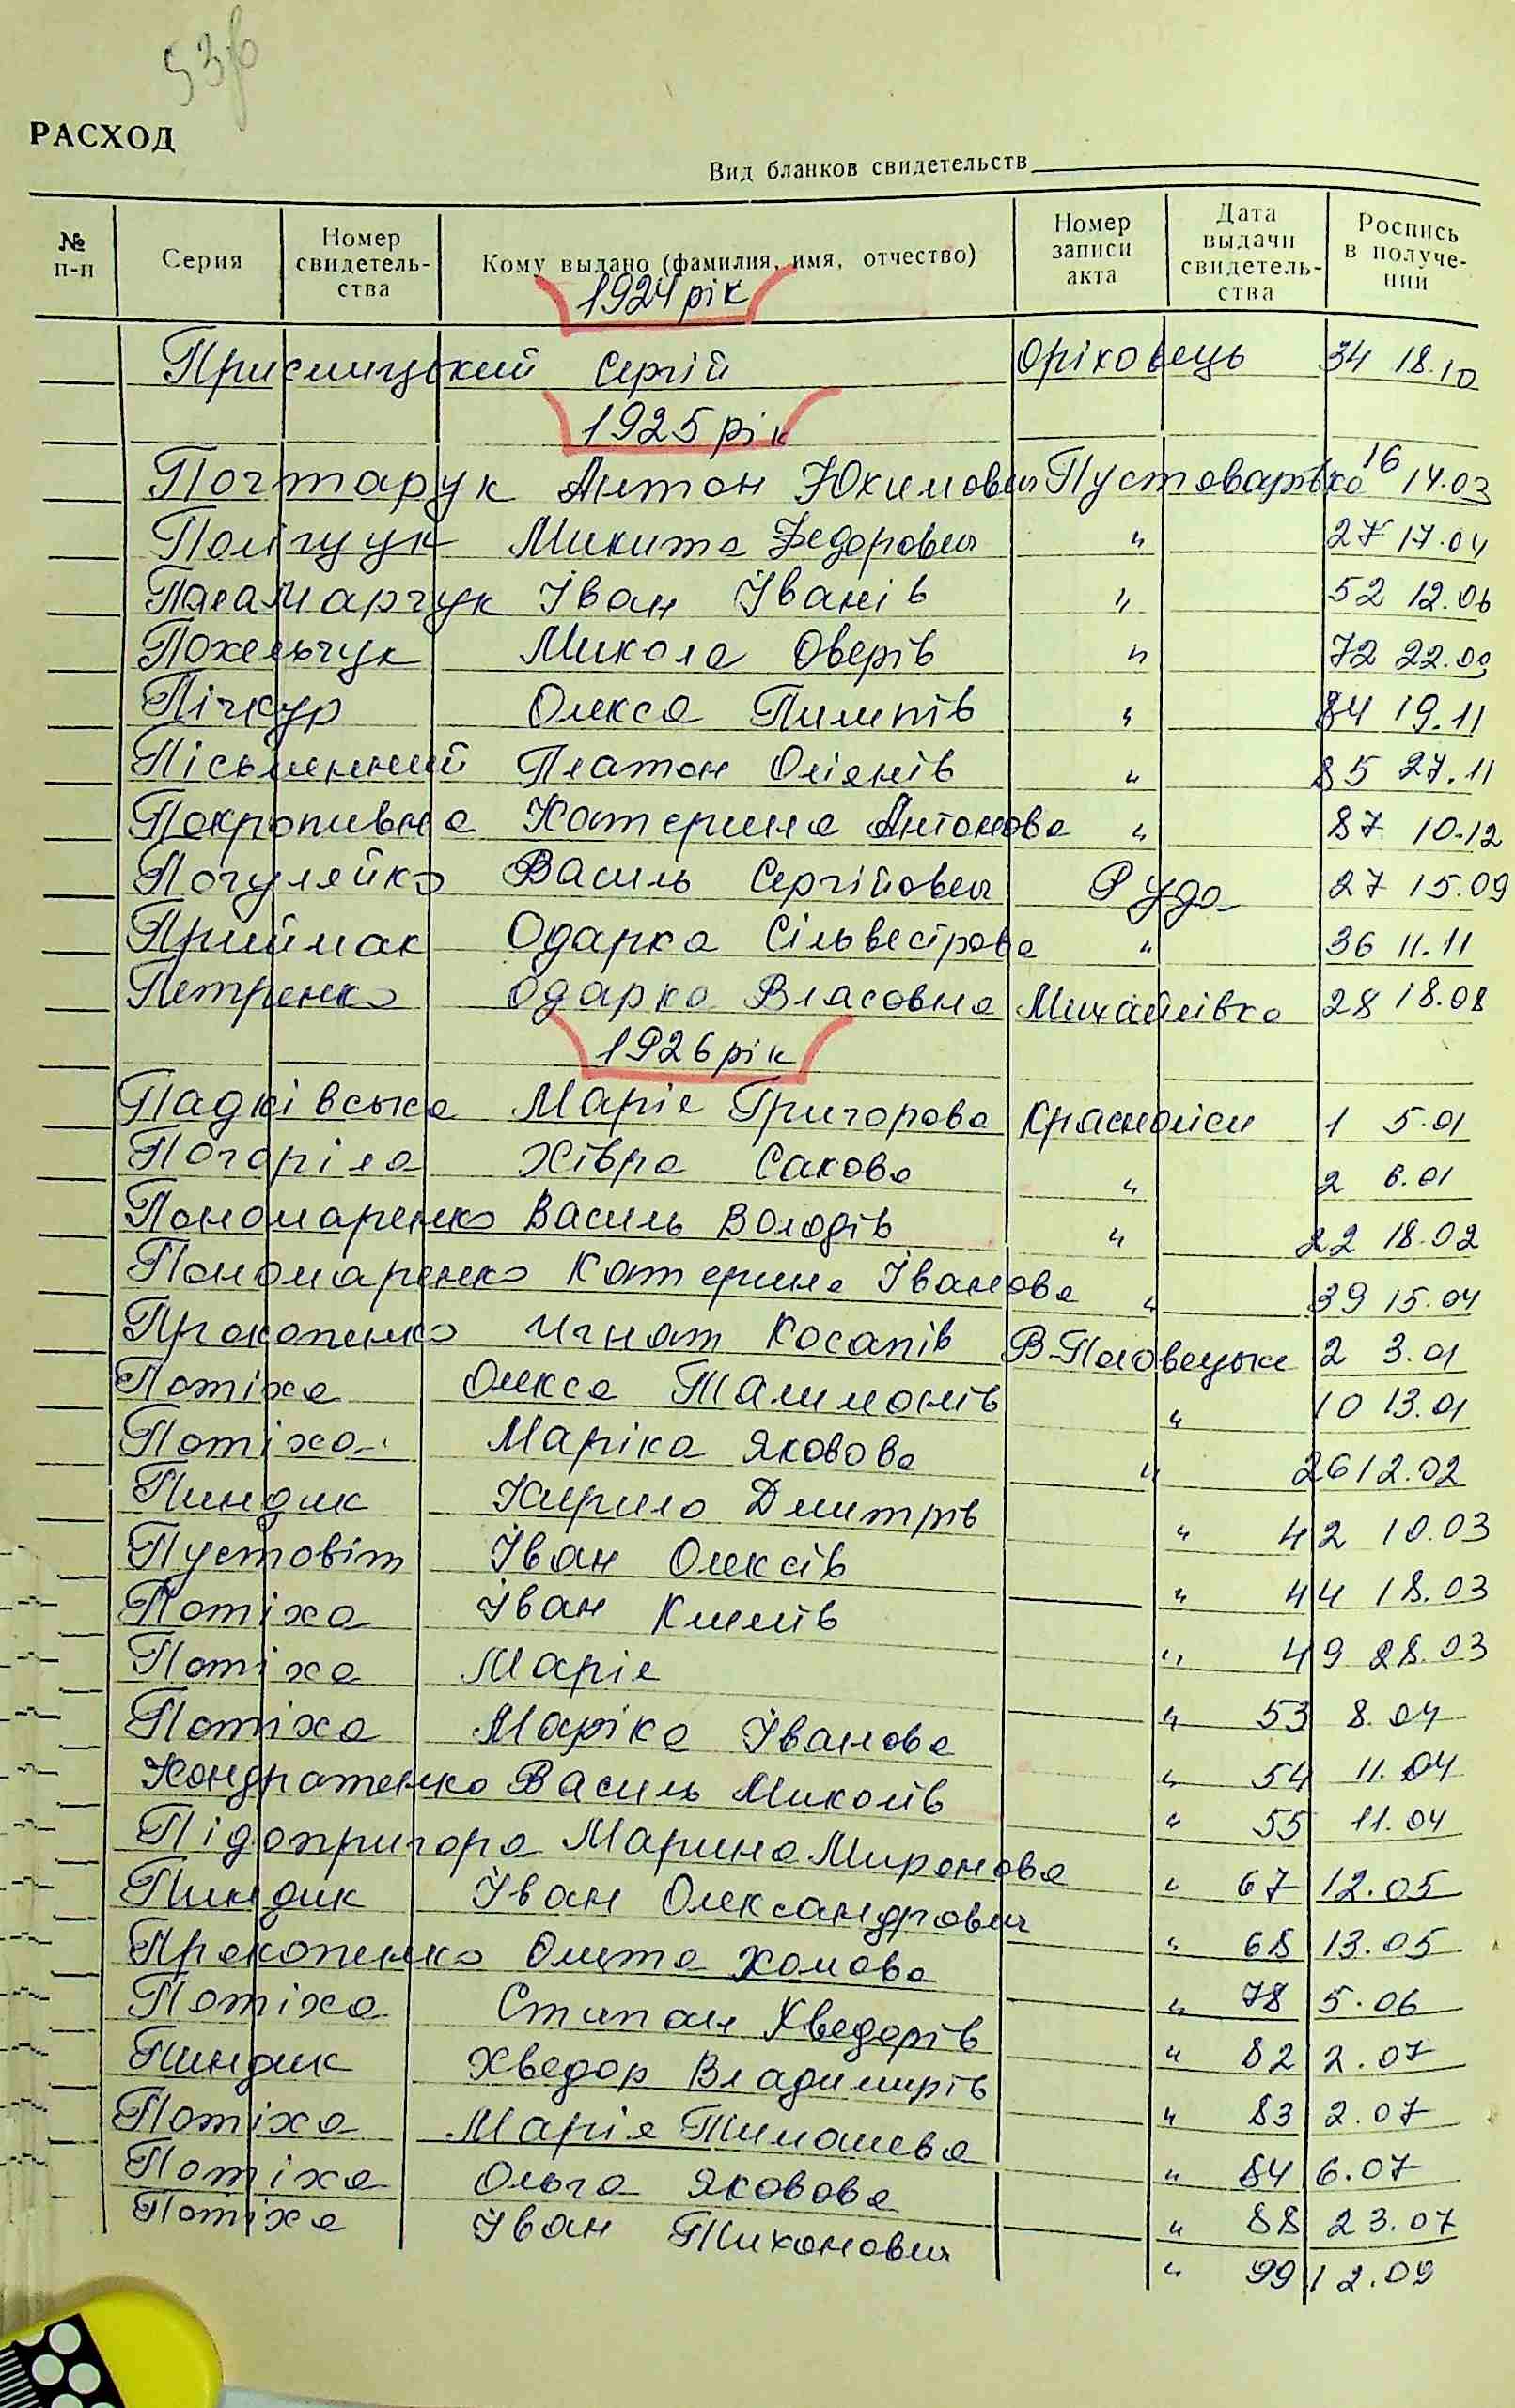 РАСХОД
Вид бланков свидетельств
№ п-п Серия Номер свидетельства Кому выдано (фамилия, имя, отчество) Номер записи акта Дата выдачи свидетельства Роспись в получении
1924 рік
Присницький Сергій Оріховець 34 18.10
1925 рік
Почтарук Антон Юхимович Пустоварівка 16 14.03
Поліщук Микита Федорович " 27 17.04
Паламарчук Іван Іванів " 52 12.06
Похельчук Микола Оверів " 72 22.09
Пічкур Олекса Пилипів " 84 19.11
Пісьменний Платон " 85 27.11
Покропивна Катерина Антонова " 87 10.12
Погуляйко Василь Сергійович Руда 27 15.09
Приймак Одарка Сільвестрова " 36 11.11
Петренко Одарка Власовна Михайлівка 28 18.08
1926 рік
Падківська Марія Григорова Красноліси 1 5.01
Погоріла Хівра Сакова " 2 6.01
Пономаренко Василь Володів " 22 18.02
Пономаренко Катерина Іванова " 39 15.04
Прокопенко Игнат Косапів В-Половецьке 2 3.01
Потіха Олекса Талимонів " 10 13.01
Потіха Маріка Яковова " 26 12.02
Пиндик Кирило Дмитрів " 42 10.03
Пустовіт Іван Олексів " 44 18.03
Потіха Іван Климів " 49 28.03
Потіха Марія " 53 8.04
Потіха Маріка Іванова " 54 11.04
Кондратенко Василь Миколів " 55 11.04
Підопригора Марина Миронова " 67 12.05
Пиндик Іван Олександрович " 68 13.05
Прокопенко Олита Хомова " 78 5.06
Потіха Стипан Хведорів " 82 2.07
Пиндик Хведор Владимирів " 83 2.07
Потіха Марія Тимошева " 84 6.07
Потіха Ольга Яковова " 88 23.07
Потіха Іван Тихонович " 99 12.09